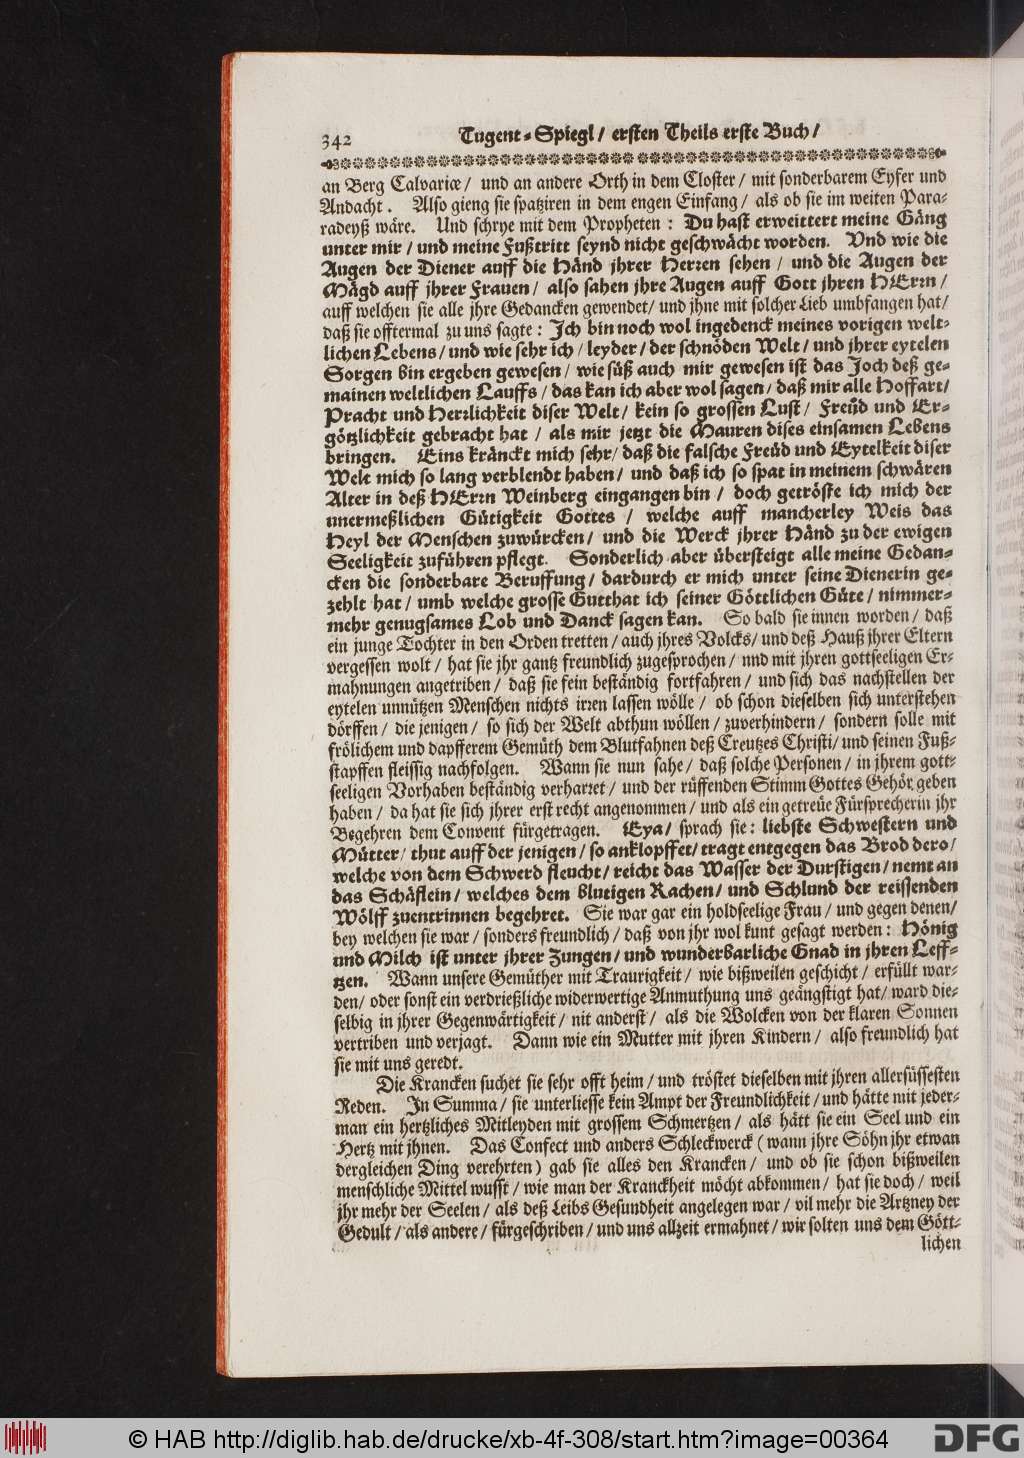 342 Tugent-Spiegl/ ersten Theils erste Buch/
an Berg Calvariæ/ und an andere Orth in dem Closter/ mit sonderbarem Eyfer und
Andacht. Also gieng sie spatziren in dem engen Einfang/ als ob sie im weiten Para-
radeyß wäre. Und schrye mit dem Propheten: Du hast erweittert meine Gäng
unter mir/ und meine Fußtritt seynd nicht geschwächt worden. Und wie die
Augen der Diener auff die Händ jhrer Herren sehen/ und die Augen der
Mägd auff jhrer Frauen/ also sahen jhre Augen auff Gott jhren HErrn/
auff welchen sie alle jhre Gedancken gewendet/ und jhne mit solcher Lieb umbfangen hat/
daß sie offtermal zu uns sagte: Ich bin noch wol ingedenck meines vorigen welt-
lichen Lebens/ und wie sehr ich/ leyder/ der schnöden Welt/ und jhrer eytelen
Sorgen bin ergeben gewesen/ wie süß auch mir gewesen ist das Joch deß ge-
mainen weltlichen Lauffs/ das kan ich aber wol sagen/ daß mir alle Hoffart/
Pracht und Herrlichkeit diser Welt/ kein so grossen Lust/ Freüd und Er-
götzlichkeit gebracht hat/ als mir jetzt die Mauren dises einsamen Lebens
bringen. Eins kränckt mich sehr/ daß die falsche Freüd und Eytelkeit diser
Welt mich so lang verblendt haben/ und daß ich so spat in meinem schwären
Alter in deß HErrn Weinberg eingangen bin/ doch getröste ich mich der
unermeßlichen Gütigkeit Gottes/ welche auff mancherley Weis das
Heyl der Menschen zuwürcken/ und die Werck jhrer Händ zu der ewigen
Seeligkeit zuführen pflegt. Sonderlich aber übersteigt alle meine Gedan-
cken die sonderbare Beruffung/ dardurch er mich unter seine Dienerin ge-
zehlt hat/ umb welche grosse Gutthat ich seiner Göttlichen Güte/ nimmer-
mehr genugsames Lob und Danck sagen kan. So bald sie innen worden/ daß
ein junge Tochter in den Orden tretten/ auch jhres Volcks/ und deß Hauß jhrer Eltern
vergessen wolt/ hat sie jhr gantz freundlich zugesprochen/ und mit jhren gottseeligen Er-
mahnungen angetriben/ daß sie fein beständig fortfahren/ und sich das nachstellen der
eytelen unnützen Menschen nichts irren lassen wölle/ ob schon dieselben sich unterstehen
dörffen/ die jenigen/ so sich der Welt abthun wöllen/ zuverhindern/ sondern solle mit
frölichem und dapfferem Gemüth dem Blutfahnen deß Creutzes Christi/ und seinen Fuß-
stapffen fleissig nachfolgen. Wann sie nun sahe/ daß solche Personen/ in jhrem gott-
seeligen Vorhaben beständig verharret/ und der rüffenden Stimm Gottes Gehör geben
haben/ da hat sie sich jhrer erst recht angenommen/ und als ein getreüe Fürsprecherin jhr
Begehren dem Convent fürgetragen. Eya/ sprach sie: liebste Schwestern und
Mütter/ thut auff der jenigen/ so anklopffet/ tragt entgegen das Brod dero/
welche von dem Schwerd fleucht/ reicht das Wasser der Durstigen/ nemt an
das Schäflein/ welches dem blutigen Rachen/ und Schlund der reissenden
Wölff zuentrinnen begehret. Sie war gar ein holdseelige Frau/ und gegen denen/
bey welchen sie war/ sonders freundlich/ daß von jhr wol kunt gesagt werden: Hönig
und Milch ist unter jhrer Zungen/ und wunderbarliche Gnad in jhren Leff-
tzen. Wann unsere Gemüther mit Traurigkeit/ wie bißweilen geschicht/ erfüllt war-
den/ oder sonst ein verdrießliche widerwertige Anmuthung uns geängstigt hat/ ward die-
selbig in jhrer Gegenwärtigkeit/ nit anderst/ als die Wolcken von der klaren Sonnen
vertriben und verjagt. Dann wie ein Mutter mit jhren Kindern/ also freundlich hat
sie mit uns geredt.
Die Krancken suchet sie sehr offt heim/ und tröstet dieselben mit jhren allersüssesten
Reden. In Summa/ sie unterliesse kein Ampt der Freundlichkeit/ und hätte mit jeder-
man ein hertzliches Mitleyden mit grossem Schmertzen/ als hätt sie ein Seel und ein
Hertz mit jhnen. Das Confect und anders Schleckwerck (wann jhre Söhn jhr etwan
dergleichen Ding verehrten) gab sie alles den Krancken/ und ob sie schon bißweilen
menschliche Mittel wusst/ wie man der Kranckheit möcht abkommen/ hat sie doch/ weil
jhr mehr der Seelen/ als deß Leibs Gesundheit angelegen war/ vil mehr die Artzney der
Gedult/ als andere/ fürgeschriben/ und uns allzeit ermahnet/ wir solten uns dem Gött-
lichen
© HAB http://diglib.hab.de/drucke/xb-4f-308/start.htm?image=00364
DFG